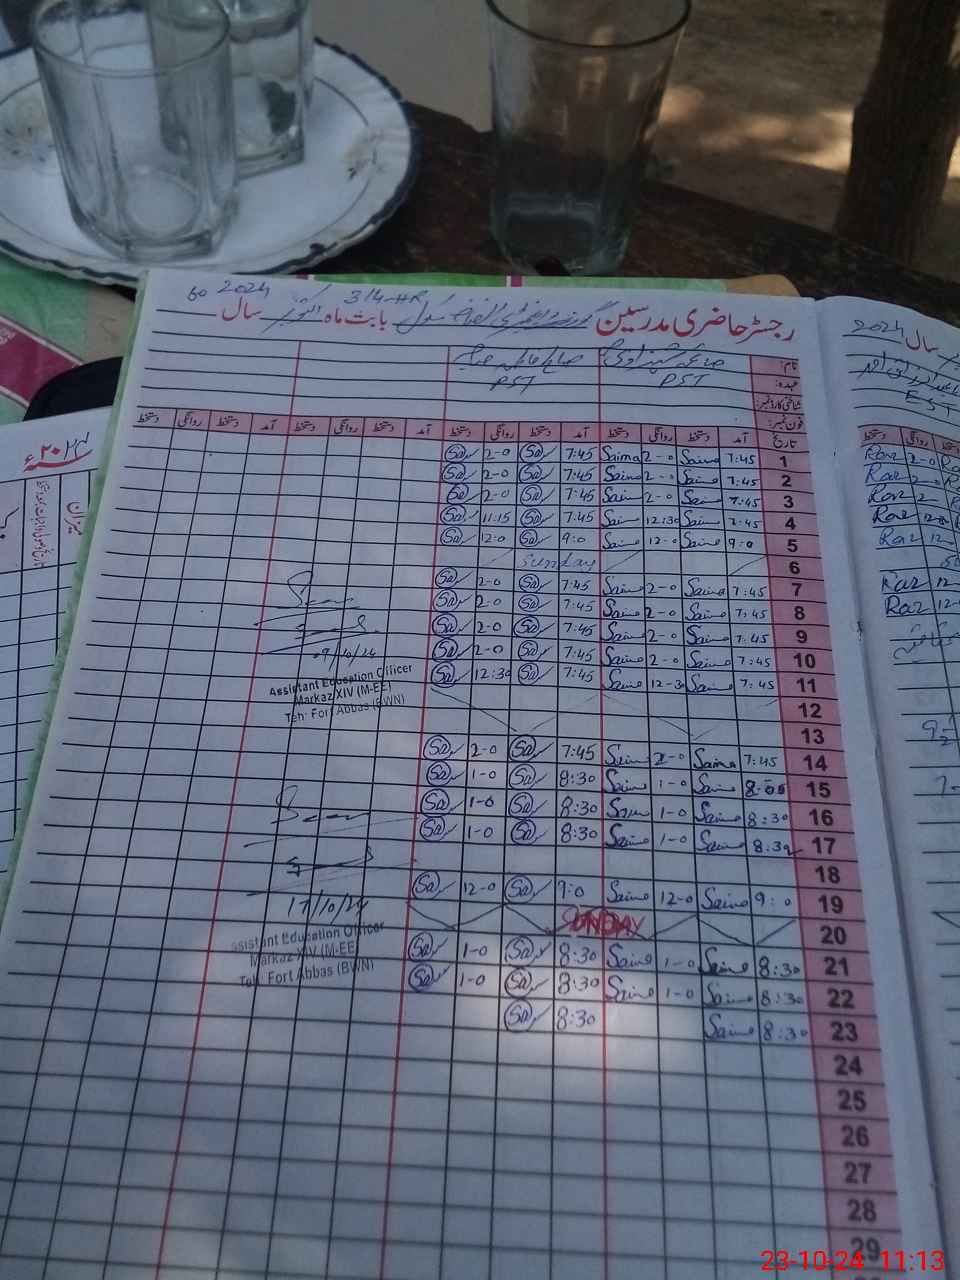 2024
314-HR
رجسٹر حاضری مدرسین
بابت ماہ اکتوبر سال
PST PST
نام:
عہدہ:
شناختی کارڈ نمبر:
فون نمبر:
تاریخ آمد دستخط روانگی دستخط آمد دستخط روانگی دستخط آمد دستخط روانگی دستخط آمد دستخط روانگی دستخط
1 7:45 Saima 2-0 Saima 7:45 Sa 2-0 Sa
2 7:45 Saima 2-0 Saima 7:45 Sa 2-0 Sa
3 7:45 Saima 2-0 Saima 7:45 Sa 2-0 Sa
4 7:45 Saima 12:30 Saima 7:45 Sa 11:15 Sa
5 9:0 Saima 12-0 Saima 9:0 Sa 12:0 Sa
6 Sunday
7 7:45 Saima 2-0 Saima 7:45 Sa 2-0 Sa
8 7:45 Saima 2-0 Saima 7:45 Sa 2:0 Sa
9 7:45 Saima 2-0 Saima 7:45 Sa 2-0 Sa
10 7:45 Saima 2-0 Saima 7:45 Sa 2-0 Sa
11 7:45 Saima 12-30 Saima 7:45 Sa 12:30 Sa
12
13
14 7:45 Saima 2-0 Saima 7:45 Sa 2-0 Sa
15 Saima 1-0 Saima 8:30 Sa 1-0 Sa
16 8:30 Saima 1-0 Saima 8:30 Sa 1-0 Sa
17 8:30 Saima 1-0 Saima 8:30 Sa 1-0 Sa
18
19 9:0 Saima 12-0 Saima 9:0 Sa 12-0 Sa
20 SUNDAY
21 8:30 Saima 1-0 Saima 8:30 Sa 1-0 Sa
22 8:30 Saima 1-0 Saima 8:30 Sa 1-0 Sa
23 8:30 Saima 8:30 Sa
24
25
26
27
28
29
09/10/24
Assistant Education Officer
Markaz XIV (M-EE)
Teh: Fort Abbas (BWN)
17/10/24
Assistant Education Officer
Markaz XIV (M-EE)
Teh: Fort Abbas (BWN)
سال 2024
EST
دستخط روانگی
Raz 2-0
Raz 2-0
Raz 2
Raz 12-0
Raz 12-
Raz 12-
Raz 12-0
23-10-24 11:13